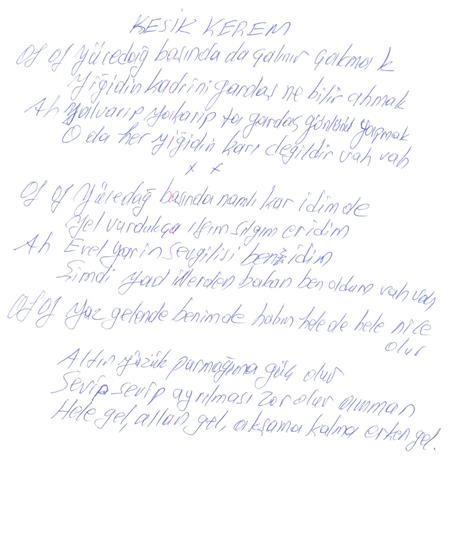 KESİK KEREM
Of Of Yücedağ başında da çalınır çakmak
Yiğidin kadrini gardaş ne bilir ahmak
Ah Yalvarıp yalvarıp ta gardaş yapmak
O da her yiğidin karı değildir vah vah
x x
Of Of Yücedağ başında namlı kar idim de
Yel vurdukça ılgım sılgım eridim
Ah Evel yarin sevgilisi ben idim
Şimdi yad illerden bakan ben oldum vah vah
Of Of Yaz gelende benimde halım hele de hele nice
olur
Altın yüzük parmağıma güç olur
Sevip sevip ayrılması zor olur
Hele gel, allan gel, akşama kalma erken gel.